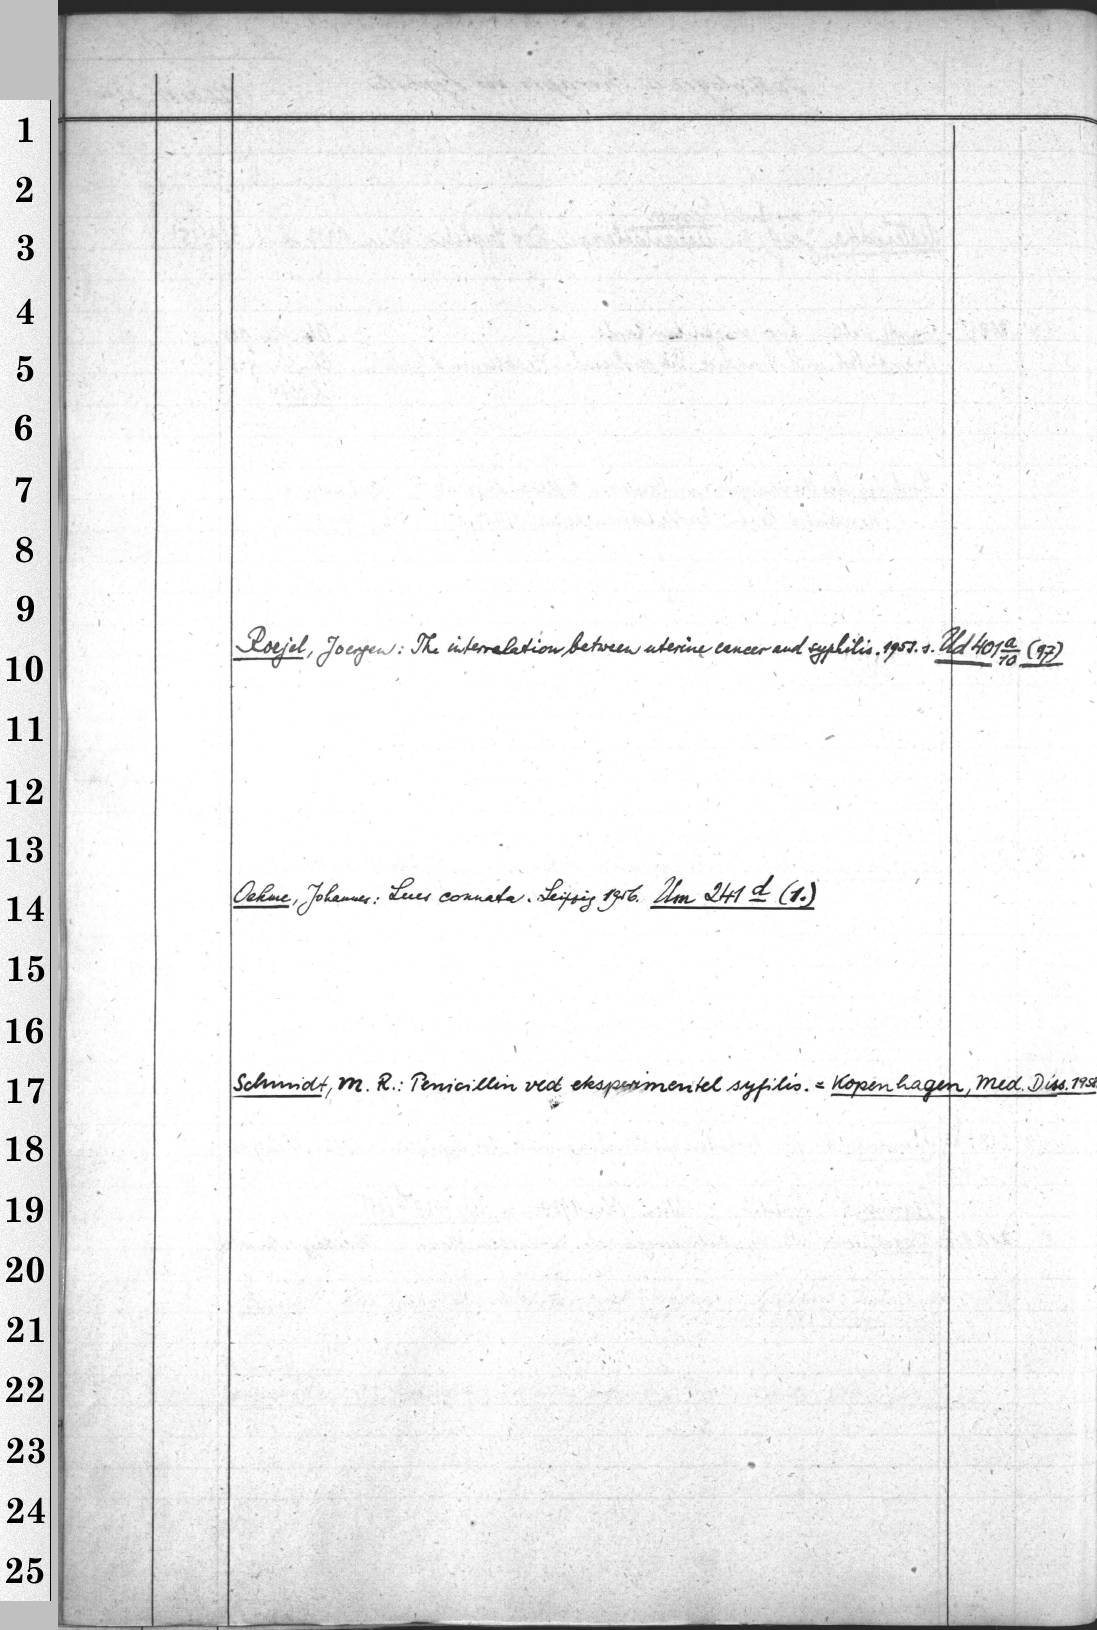 1
2
3
4
5
6
7
8
9
Roejel, Joergen: The interrelation between uterine cancer and syphilis. 1953. s. Ud 401 a/10 (97)
10
11
12
13
Oehme, Johannes: Lues connata. Leipzig 1956. Um 241 d (1.)
14
15
16
Schmidt, M. R.: Penicillin ved eksperimentel syfilis. = Kopenhagen, Med. Diss. 1958
17
18
19
20
21
22
23
24
25